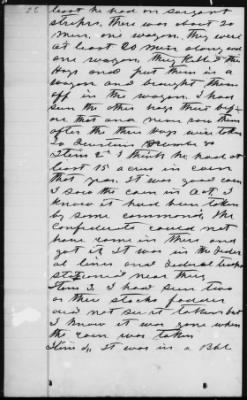 least he had on sargant
stripes, there was about 20
men, one wagon, they were
at least 20 men along and
one wagon, they kill the
Hogs and put them in a
wagon and brought them
off in the wagon. I had
seen the other hogs there before
that and never saw them
after the three hogs were taken
to
Item 2 I think he had at
least 15 acres in corn
that year. It was good corn
I saw the corn in Oct. I
know it had been taken
by some command, the
Confederate could not
have come in there and
got it It was in the Feder
al lines and Federal troops
stationed near there
Item 3 I had seen two
or three stacks fodder
and not see it taken but
I know it was gone when
the corn was taken
Item 4. It was in a Bbl